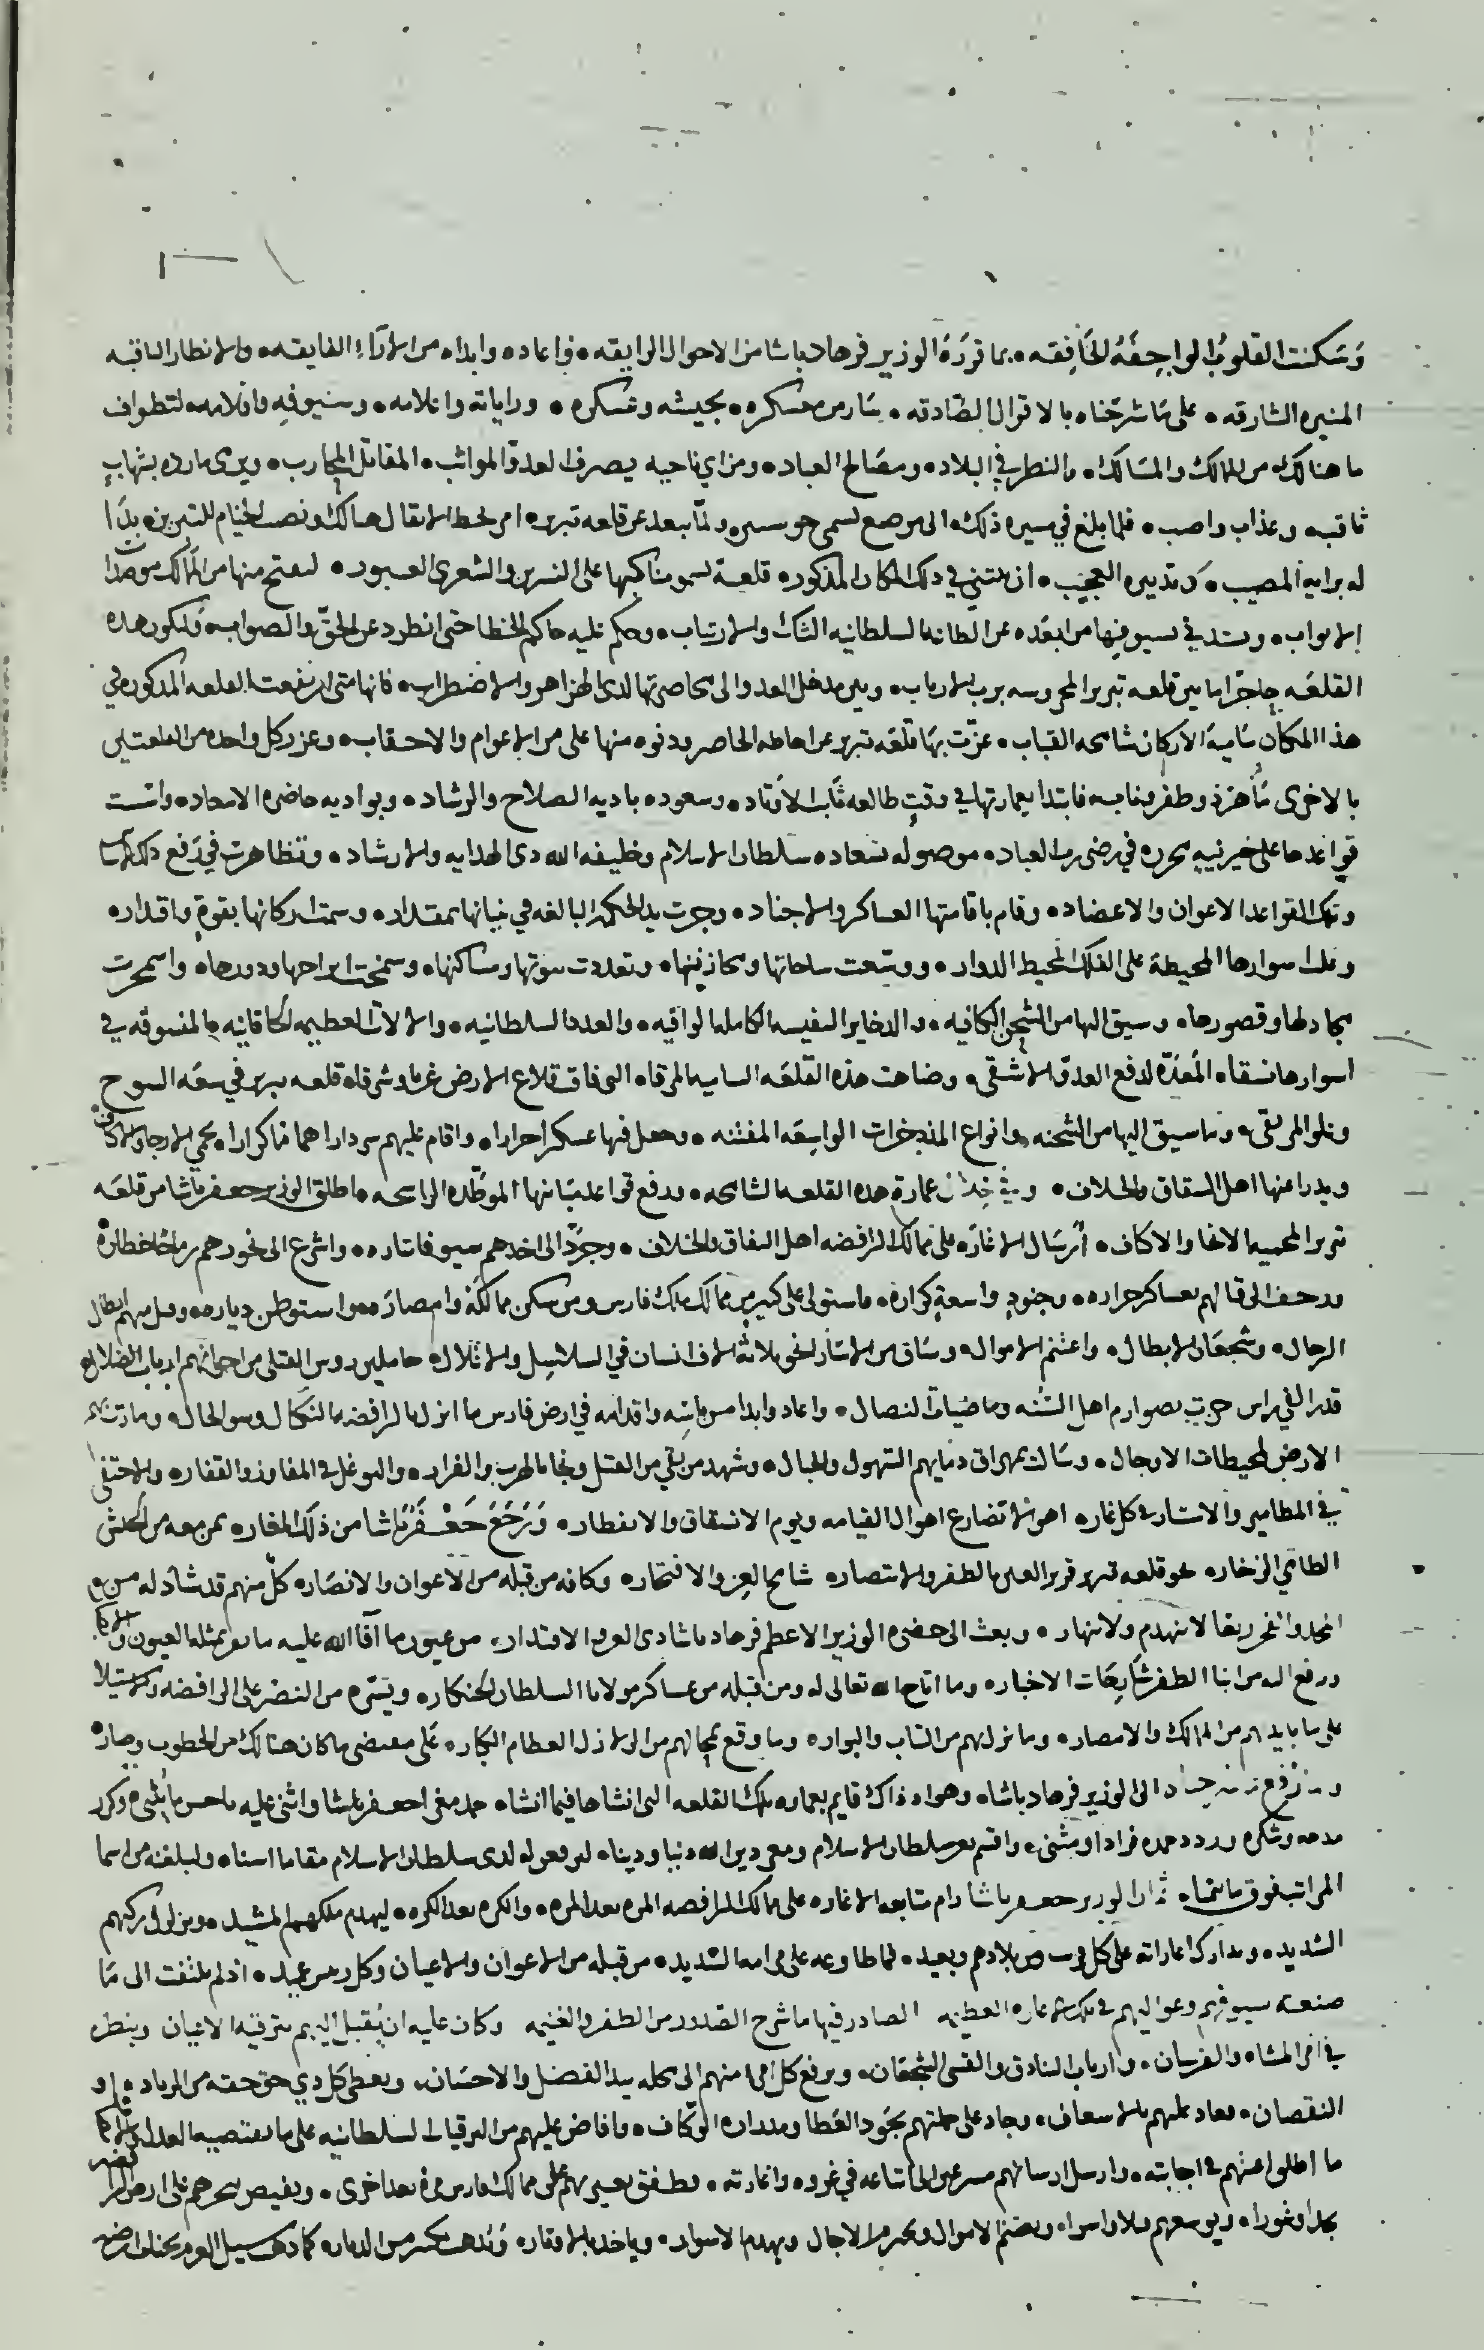 وَسَكنت القلوبُ الواجِفَةُ الخَافِقه ۰ بما قررَهُ الوزير فرهاد باشا من الاحوال الرايقه ۰ واعاده وابداه من الارَآءِ الفايقه ۰ والانظار الثاقبه
المنيره الشارقه ۰ على مَا شرحناه بالاقوال الصَّادقه ۰ سَار من معسكره ۰ بجيشه وعَسكره ۰ وراياته واعلامه ۰ وسيوفِهِ واقلامه لتطواف
ما هنالك من الممالك والمسَالك ۰ والنظر في البلاد ۰ ومصَالح العباد ۰ ومن اي ناحيه يصرف العدوّ المواثب ۰ المقاتل المحارب ۰ ويرمى مارده بشهابٍ
ثاقب ۰ وعذاب واصب ۰ فلما بلغ في سيره ذلك الى موضع يسمى ولمّا يبعد عن قلعه تبريز امر بحط الاثقال هنالك ونصب الخيام للتبريز بدَا
له برايه المصيب ۰ وتدبيره العجيب ۰ ان يبتني في ذلك المكان المذكور ۰ قلعة تسمو مناكبها على النسرين والشعرى العبور ۰ ليفتح منها من الممالك موصدات
الابواب ۰ من ابعَده عن الطاعه السلطانيه الشك والارتياب ۰ وحكم عليه حاكم الخطا حتى انطرد عن الحقّ والصواب ۰ ولتكون هذه
القلعَه حاجزًا ما بين قلعه تبريز المحروسه برب الارباب ۰ وبين مدخل العدو الى محاصرتها لدى الهزاهز والاضطراب ۰ فانها متى ارتفعت القلعه المذكوره في
هذا المكان سَاميةُ الاركان شامخه القباب ۰ عزّت بها قلعَه تبريز عن احاطه المحاصر ودنوه منها على مر الاعوام والاحقاب ۰ وعزر كل واحده من القلعتين
بالاخرى وظفر وناب ۰ فابتدا بعمارتها في وقتٍ طالعه ثابت الاوتاد ۰ وسعوده باديه الصلاح والرشاد ۰ وبواديه حاضره الاسعاد ۰ واسّست
قواعدها على خير نيه محرره في رضى رب العباد ۰ موصوله بسَعاده سلطان الاسلام وخليفه الله ذى الهدايه والارشاد ۰ وتظاهرت في رَفع ذلك الاساس
وتلك القواعد الاعوان والاعضاد ۰ وقام باقامتها العساكر والاجناد ۰ وجرت يد الحكمه البالغه في بنيانها بمقدار ۰ وسمت اركانها بقوة واقتدار ۰
وعلت اسوارها المحيطة على الفلك المحيط الدوار ۰ ووسّعت ساحاتها ومخازنها ۰ وتعددت بيوتها ومساكنها ۰ وشمخت ابراجها ودورها ۰ واشمخرت
مجادلها وقصورها ۰ وسيق اليها من الشحن الكافيه ۰ والذخاير النفيسه الكامله الوافيه ۰ والعدد السلطانيه ۰ والالات العظيمه الخاقانيه المنسوقه في
اسوارها نسقا ۰ المُعَدّه لدفع العدوّ الاشقى ۰ وضاهت هذه القلعَه الساميه المرقاه التي فاق قلاع الارض غربا وشرقا ۰ قلعه تبريز في سعه السوح
وعلو المرتقى ۰ وما سيق اليها من الشحنه وانواع المدخرات الواسعَه المفننه ۰ وجعل فيها عسكرا جرارا ۰ واقام عليهم سردارا هماما كرارا ۰ يحمي الارجا والاكناف
ويدرا عنها اهل الشقاق والخلاف ۰ وفي خلال عمارة هذه القلعه الشامخه ۰ ورفع قواعد بنيانها الموطّده الراسخه ۰ اطلق الوزير جعفر باشا من قلعَه
تبريز المحميه الانحا والاكناف ۰ ارسَال الاغارَه على ممالك الرافضه اهل النفاق والخلاف ۰ وجرّد الى اخذهم سيوفا بتاره ۰ واشرع الى نحورهم رماحا خطاره
وزحف الى قتالهم بعساكر جراره ۰ وجنودٍ واسعةٍ كراره ۰ فاستولى على كثير من ممالك ملك فارس ومن سكن ممالكه وامصاره ۰ واستوطن دياره ۰ وقتل منهم ابطال
الرجال ۰ وشجعان الابطال ۰ واغتنم الاموال ۰ وساق من الاسارى نحو ثلاثة الاف انسان في السلاسِل والاغلال ۰ حاملين روس القتلى من اخوانهم ارباب الضلال
قدر الفي راس جزت بصوارم اهل السّنه وماضيات النصال ۰ واعاد وابدا من باسِه واقدامه في ارض فارس ما انزل بالرافضه النَكال وسو الحال ۰ ومادت بهم
الارض لمحيطات الاوجال ۰ وسَالت بمهراق دمايهم السّهول والجبال ۰ وشهد من بقي من القتل ونجا بالهرب والفرار ۰ والتوغل في المفاوز والقفار ۰ والاختفا
في المطامير والاستتار في كل غار ۰ اهوالا تضارع اهوال القيامه ويوم الانشقاق والانفطار ۰ وَرَجَعَ جَعْفَرُ باشا من ذلك المغار ۰ بمن معه من الجيش
الطامي الزخار ۰ نحو قلعه تبريز قرير العين بالظفر والانتصار ۰ شامخ العز والافتخار ۰ وكافه من قبله من الاعوان والانصار ۰ كلّ منهم قد شاد له من
المجد والفخر بيتا لا ينهدم ولا ينهار ۰ وبعث الى حضره الوزير الاعظم فرهاد باشا ذى العز والاقتدار ۰ من عيون ما افا الله عليه ما تقر بمثله العيون
ورفع اليه من انبا الظفر شَارِحَات الاخبار ۰ وما اتاح الله تعالى له ومن قبله من عساكر مولانا السلطان الخنكار ۰ ويسّره من النصر على الرافضه والاستيلا
على ما بايديهم من الممالك والامصار ۰ وما نزل بهم من التباب والبوار ۰ وما وقع بمجالهم من الزلازل العظام الكبار ۰ على مقتضى ما كان هنالك من الخطوب وصار ۰
الى الوزير فرهاد باشا ۰ وهو اذ ذاك قايم بعماره تلك القلعه التى انشاها فيما انشا ۰ حمد مغزى جعفر باشا واثنى عليه باحسن ما يثنى ۰ وكرر
مدحه وشكره وردد حمده فرادا ومثنى ۰ واقسم بعز سلطان الاسلام ومعز دين الله دنيا ودينا ۰ ليرفعن له لدى سلطان الاسلام مقاما اسنا ۰ وليبلغنه من اسما
المراتب فوق ما يتمنا ۰ ثم ان الوزير جعفر باشا رام متابعه الاغاره على ممالك الرافضه المره بعد المره ۰ والكره بعد الكره ۰ ليهدم ملكهم المشيد ۰ ويزلزل ركنهم
الشديد ۰ وتدارك اغاراته على كل قريب من بلادهم وبعيد ۰ فما طاوعه على مرامه الشديد ۰ من قبله من الاعوان والاعيان وكل رييس عميد ۰ اذ لم يلتفت الى مَا
صنعته سيوفهم وعواليهم في تلك الاغاره العظيمه الصادر فيها ما شرح الصّدور من الظفر والغنيمه وكان عليه ان يُقبل اليهم بترقيه الاعيان وينظر
في امر المشاه والفرسان ۰ وارباب البنادق والقسى الشجعان ۰ ويرفع كل امرء منهم الى محله بيد الفضل والاحسَان ۰ ويعطى كل ذي حق حقه من الزياده او
النقصان ۰ فعاد عليهم بالاسعاف ۰ وجاد على جملتهم بجَود العَطا ومدراره الوكّاف ۰ وافاض عليهم من الترقيات السلطانيه على ما تقتضيه العداله
ما اطلق اعنتهم في اجابته ۰ وارسل ارسالهم مسرعين الى اتباعه في غزوه واغارته ۰ وطفق يغير بهم على ممالك فارس مرة بعد اخرى ۰ ويفيض بحرهم على ارض
نجدا وغورا ۰ ويوسعهم قتلا واسرا ۰ ويغتنم الاموال ويخترم الاجال ويهدم الاسوار ۰ وياخذ بالاوتار ۰ ويُذهب بكثير من الديار ۰ كما ذهب سيل العرم